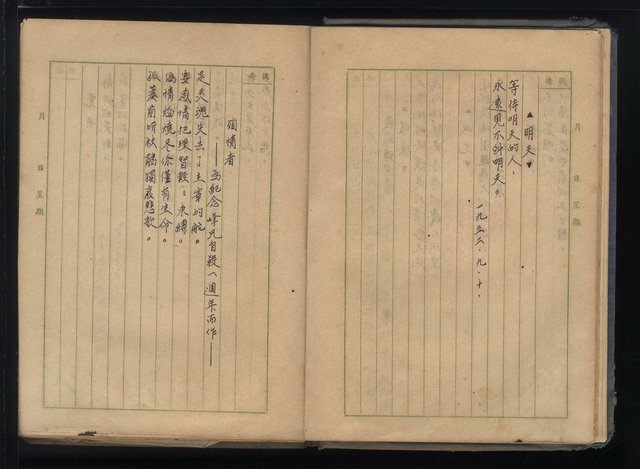 ▲明天▼
等待明天的人，
永遠見不到明天。
一九五二．九．十．
月 日 星期
殉情者
——為紀念峰兄自殺八週年而作——
是灵魂失去了主宰的舵。
要感情把理智殺：束縛。
為情焰燒尽你僅有生命。
孤墓前听秋鵑獨哀悲歌。
月 日 星期